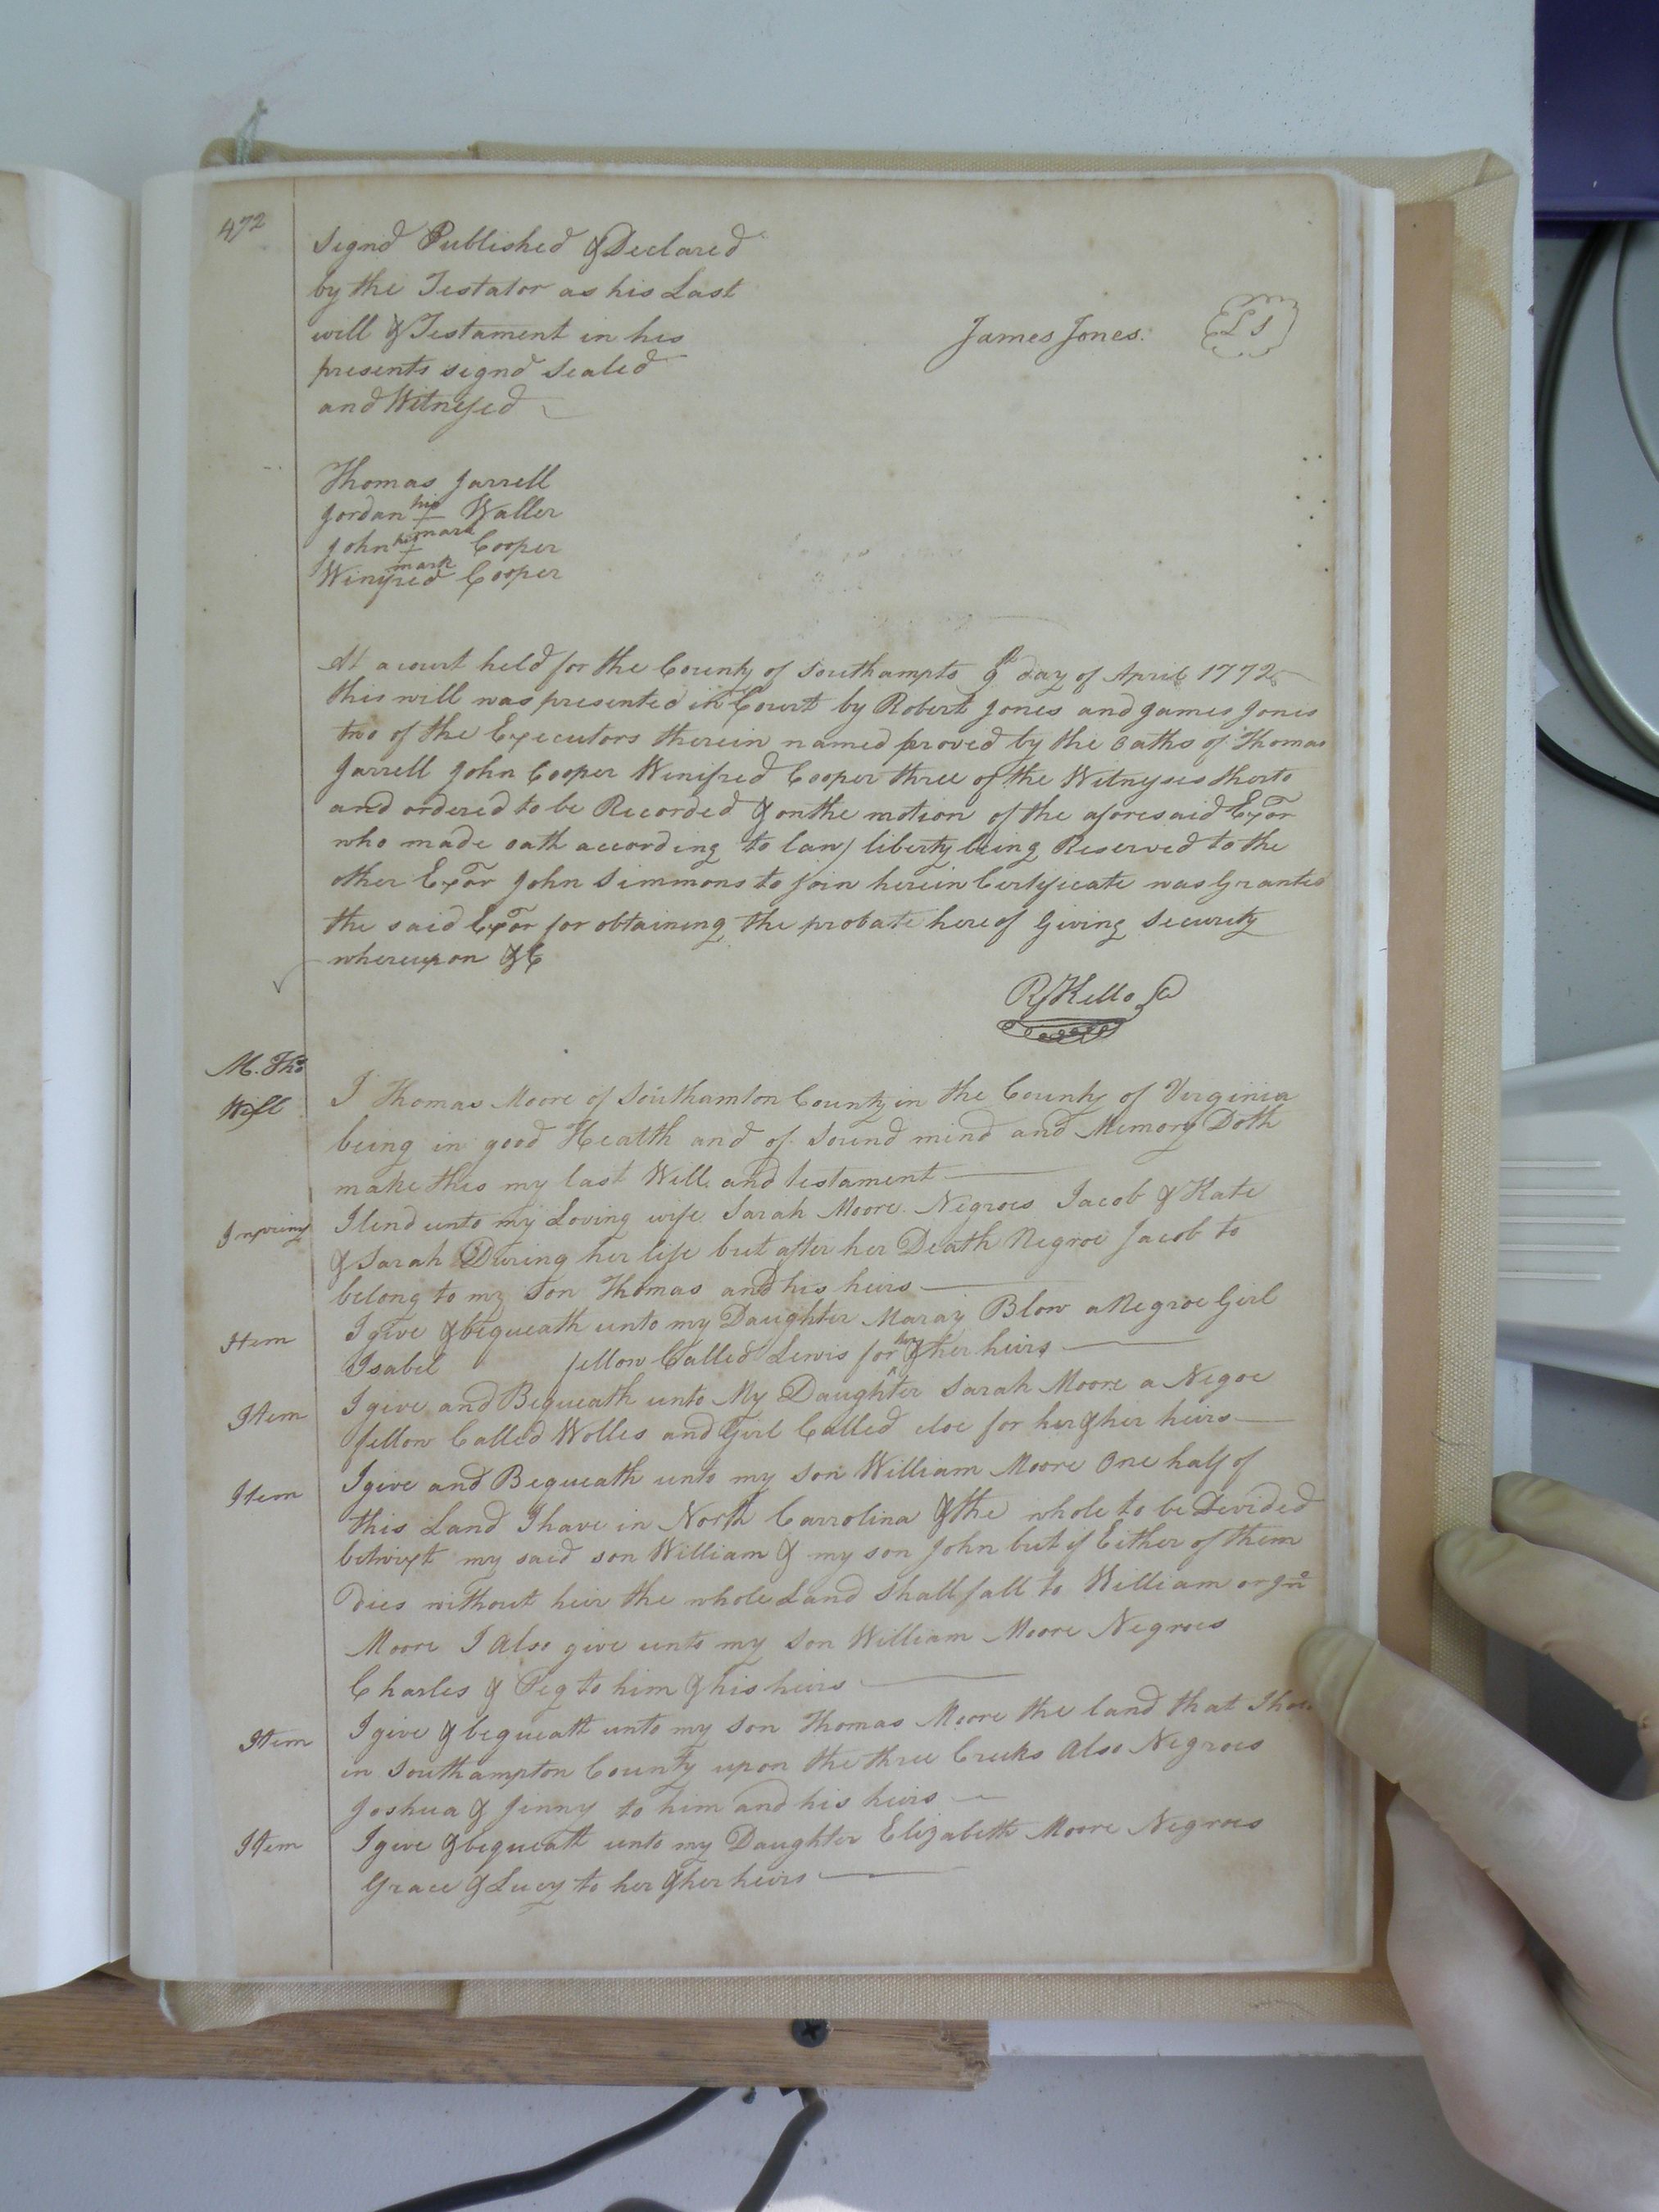 472
Signd Published & Declared
by the Testator as his Last
will & Testament in his
presents signd Sealed
and Witnessed
James Jones.
LS
Thomas Jarrell
Jordan his + mark Waller
John his + mark Cooper
Winifred Cooper
At a court held for the County of Southampto 9th day of April 1772
this will was presented in Court by Robert Jones and James Jones
two of the Executors therein named proved by the oaths of Thomas
Jarrell John Cooper Winifred Cooper three of the Witnesses therto
and ordered to be Recorded & on the motion of the aforesaid Exor
who made oath according to law / liberty being Reserved to the
other Exor John Simmons to join herein Certificate was Granted
the said Exor for obtaining the probate hereof Giving Security
whereupon &C
R Kello
M. Thos
Will
I Thomas Moore of Southamton County in the County of Virginia
being in good Health and of Sound mind and Memory Doth
make this my last Will and testament
I lend unto my Loving wife Sarah Moore Negroes Jacob & Kate
& Sarah During her life but after her Death Negroe Jacob to
belong to my Son Thomas and his heirs
Item
I give & bequeath unto my Daughter Maray Blow a Negroe Girl
Isabel fellow Called Lewis for her & her heirs
Item
I give and Bequeath unto My Daughter Sarah Moore a Negoe
fellow Called Wolles and Girl Called cloe for her & her heirs
Item
I give and Bequeath unto my Son William Moore One half of
this Land I have in North Carrolina & the whole to be Devided
betwixt my said son William & my son John but if Either of them
Dies without heir the whole Land Shall fall to William or Jno
Moore I Also give unto my Son William Moore Negroes
Charles & Peg to him & his heirs
Item
I give & bequeath unto my Son Thomas Moore the land that I
in Southampton County upon the three Creeks Also Negroes
Joshua & Jinny to him and his heirs
Item
I give & bequeath unto my Daughter Elizabeth Moore Negroes
Grace & Lucy to her & her heirs